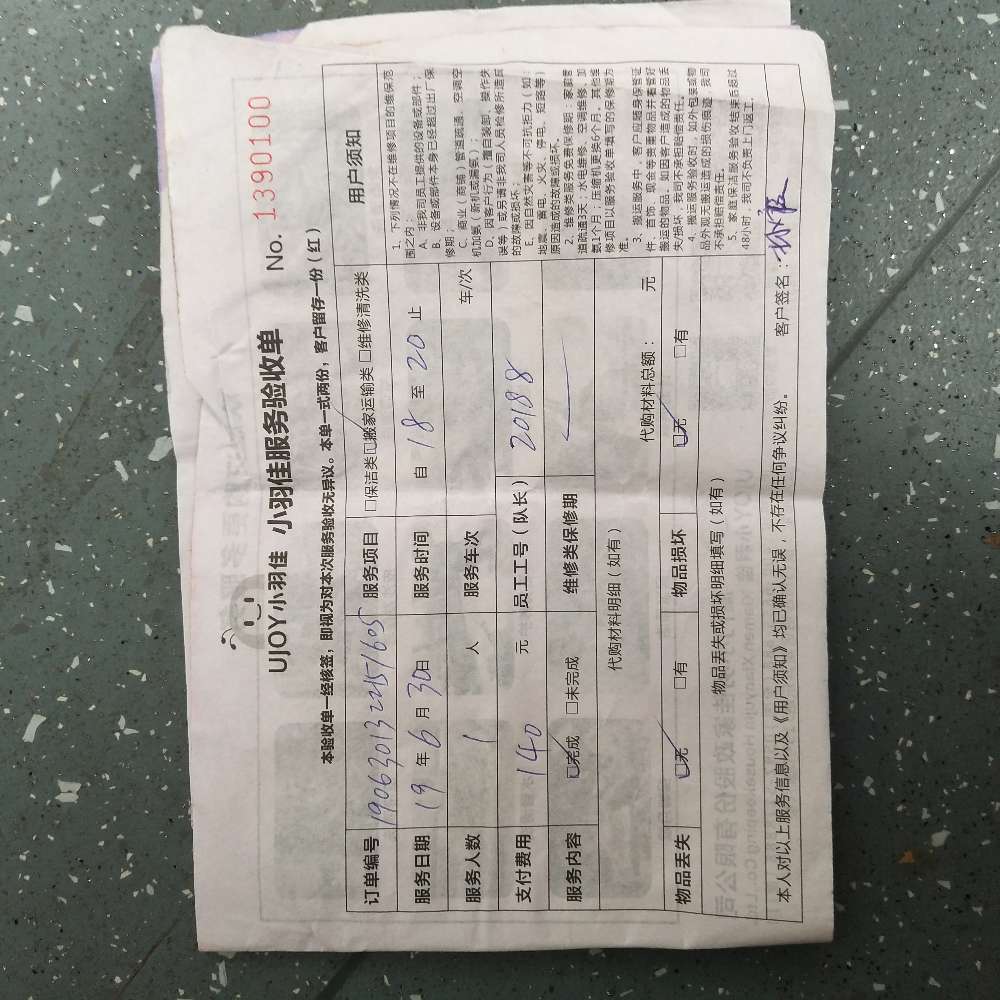 UJOY小羽佳 小羽佳服务验收单 No. 1390100
本验收单一经核签，即视为对本次服务验收无异议。本单一式两份，客户留存一份（红）
订单编号 190630132245/605 服务项目 □保洁类☑搬家运输类□维修清洗类
服务日期 19年6月30日 服务时间 自 18 至 20 止
服务人数 1 人 服务车次 车/次
支付费用 140 元 员工工号（队长） 20188
服务内容 ☑完成 □未完成 维修类保修期
代购材料明细（如有） 代购材料总额： 元
物品丢失 ☑无 □有 物品损坏 ☑无 □有
物品丢失或损坏明细填写（如有）
用户须知
1、下列情况不在维修项目的维保范
围之内：
A、非我司员工提供的设备或部件；
B、设备或部件本身已经超过出厂保
修期；
C、商业（商铺）管道疏通、空调空
机加氨（新机或漏氨）；
D、因客户行为（擅自装卸、操作失
误等）或另请非我司人员检修所造成
的故障或损坏；
E、因自然灾害等不可抗拒力（如
地震、蓄电、火灾、停电、短路等）
原因造成的故障或损坏。
2、维修类服务免费保修期：家庭管
道疏通3天；水电维修、空调维修、加
氨1个月；压缩机更换6个月，其他维
修项目以服务验收单填写的保修期为
准。
3、搬运服务中，客户应随身保管证
件、首饰、现金等贵重物品并看管好
搬运的物品，如因客户造成的物品丢
失/损坏，我司不承担赔偿责任。
4、搬运服务验收时，如外包装或物
品外观无搬运造成的损伤痕迹，我司
不承担赔偿责任。
5、家庭保洁服务验收结束后超过
48小时，我司不负责上门返工。
本人对以上服务信息以及《用户须知》均已确认无误，不存在任何争议纠纷。 客户签名：